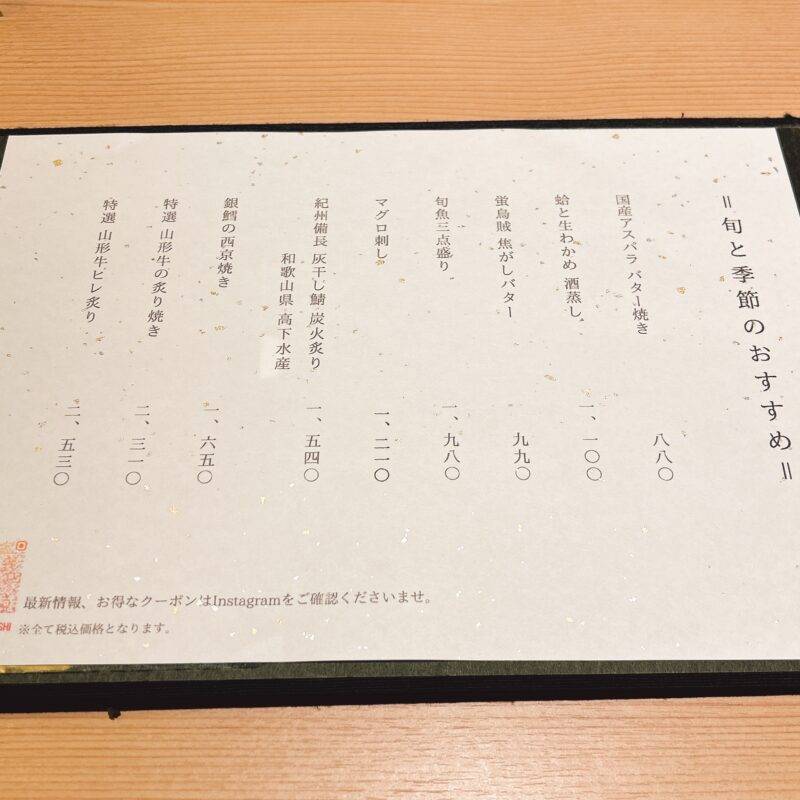 ＝旬と季節のおすすめ＝
国産アスパラ バター焼き 八八〇
蛤と生わかめ 酒蒸し 一、一〇〇
蛍烏賊 焦がしバター 九九〇
旬魚三点盛り 一、九八〇
マグロ刺し 一、二一〇
紀州備長 灰干し鯖 炭火炙り 一、五四〇
和歌山県 高下水産
銀鱈の西京焼き 一、六五〇
特選 山形牛の炙り焼き 二、三一〇
特選 山形牛ヒレ炙り 二、五三〇
最新情報、お得なクーポンはInstagramをご確認くださいませ。
※全て税込価格となります。